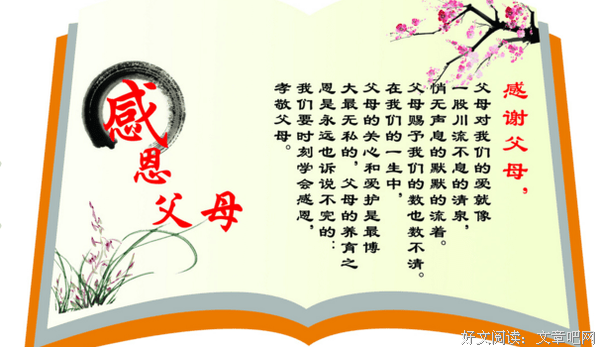 感谢父母，
父母对我们的爱就像
一股川流不息的清泉，
悄无声息的默默的流着。
父母赐予我们的数也数不清。
在我们的一生中，
父母的关心和爱护是最博
大最无私的，父母的养育之
恩是永远也诉说不完的：
我们要时刻学会感恩，
孝敬父母。
感恩父母
好文阅读：文章吧网